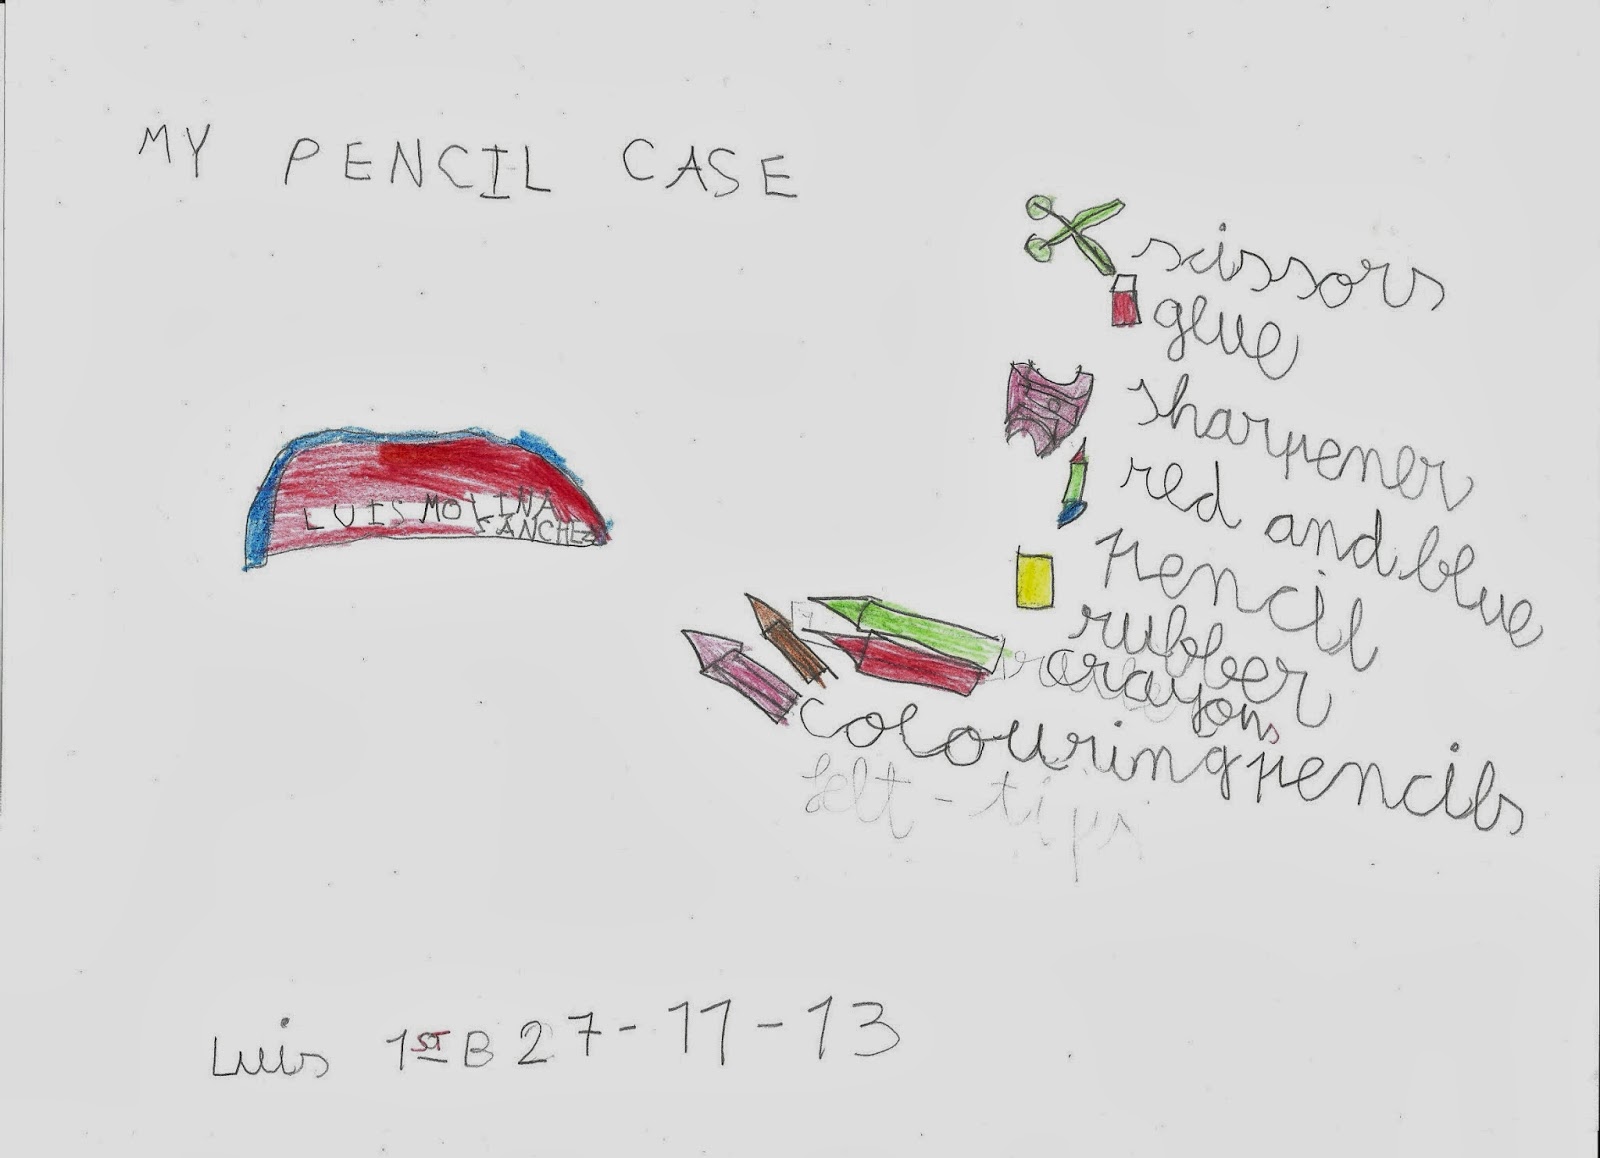 MY PENCIL CASE
scissors
glue
sharpener
red and blue
pencil
rubber
crayons
colouring pencils
felt-tips
LUIS MOLINA
SANCHEZ
Luis 1ST B 27-11-13